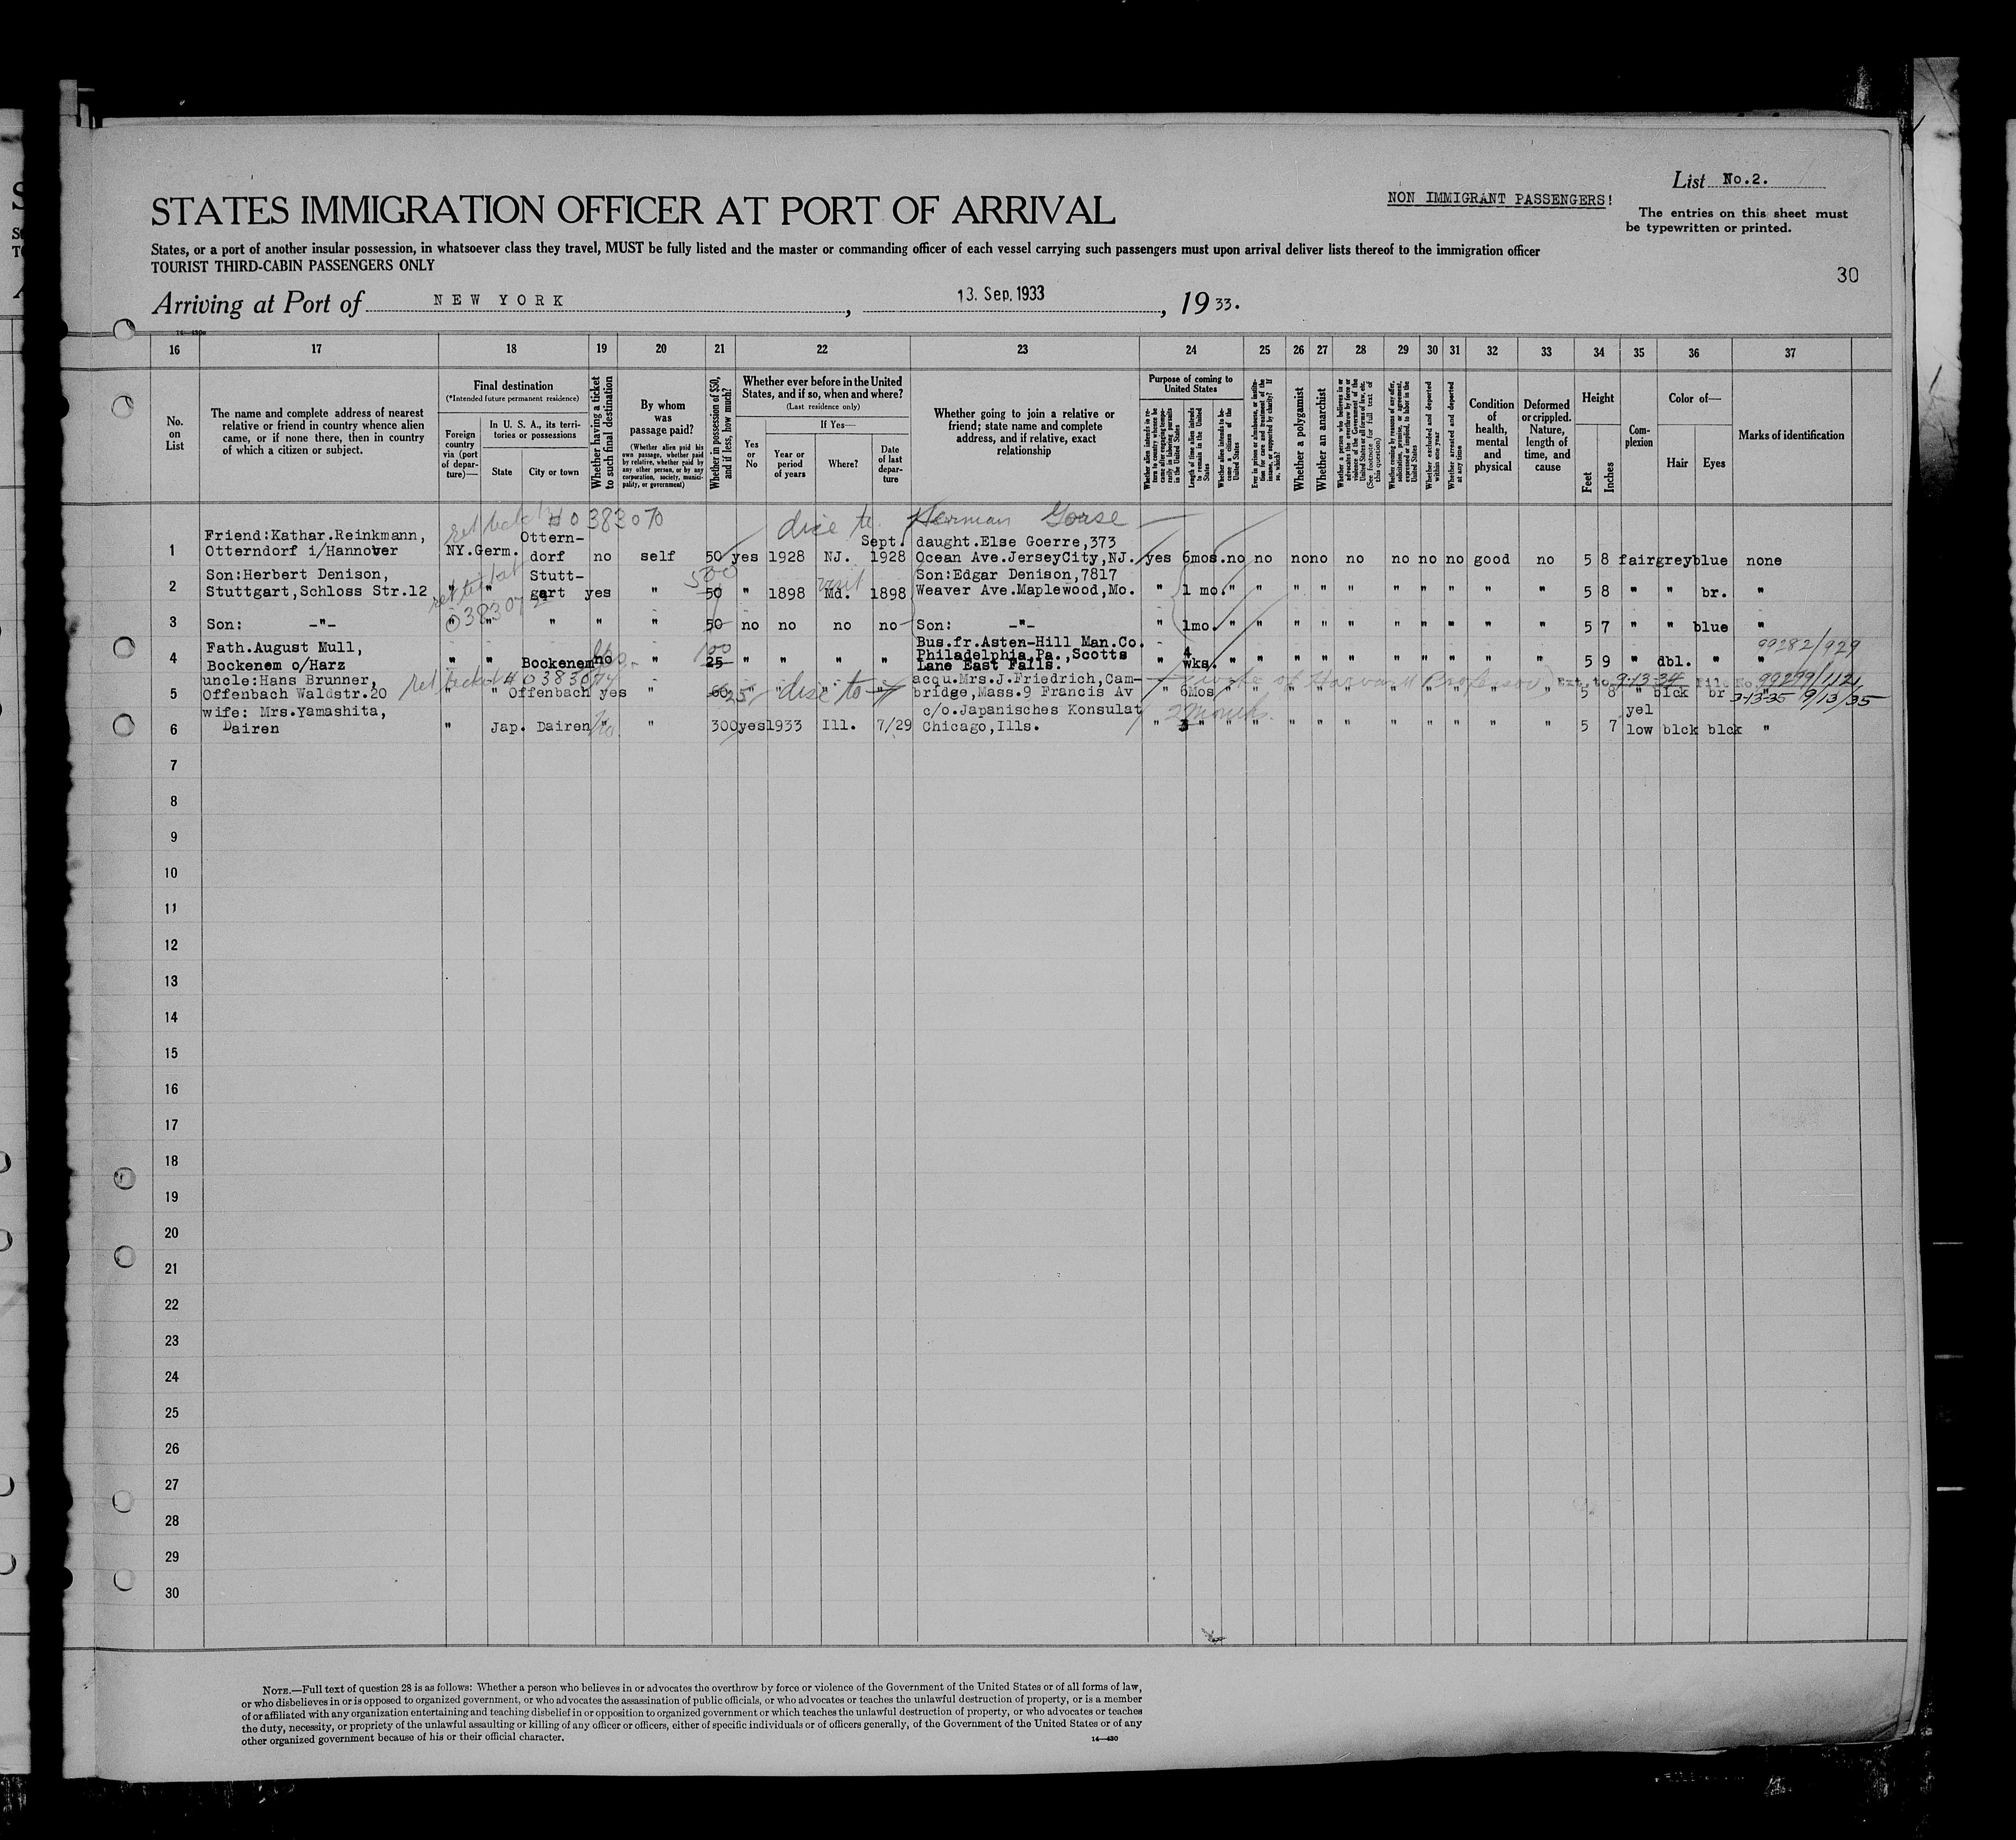 List No.2.
NON IMMIGRANT PASSENGERS!
STATES IMMIGRATION OFFICER AT PORT OF ARRIVAL
The entries on this sheet must
be typewritten or printed.
States, or a port of another insular possession, in whatsoever class they travel, MUST be fully listed and the master or commanding officer of each vessel carrying such passengers must upon arrival deliver lists thereof to the immigration officer
TOURIST THIRD-CABIN PASSENGERS ONLY
30
Arriving at Port of NEW YORK, 13. Sep. 1933, 19 33.
16 17 18 19 20 21 22 23 24 25 26 27 28 29 30 31 32 33 34 35 36 37
No. on List
The name and complete address of nearest
relative or friend in country whence alien
came, or if none there, then in country
of which a citizen or subject.
Final destination
(*Intended future permanent residence)
Foreign country via (port of departure)—
In U. S. A., its territories or possessions
State
City or town
Whether having a ticket to such final destination
By whom was passage paid?
(Whether alien paid his own passage, whether paid by relative, whether paid by any other person, or by any corporation, society, municipality, or government)
Whether in possession of $50, and if less, how much?
Whether ever before in the United States, and if so, when and where?
(Last residence only)
Yes or No
If Yes—
Year or period of years
Where?
Date of last departure
Whether going to join a relative or friend; state name and complete address, and if relative, exact relationship
Purpose of coming to United States
Whether alien intends to return to country whence he came after engaging temporarily in laboring pursuits in the United States
Length of time alien intends to remain in the United States
Whether alien intends to become a citizen of the United States
Ever in prison or almshouse, or institution for care and treatment of the insane, or supported by charity? If so, which?
Whether a polygamist
Whether an anarchist
Whether a person who believes in or advocates the overthrow by force or violence of the Government of the United States or all forms of law, etc. (See footnote for full text of this question)
Whether coming by reason of any offer, solicitation, promise, or agreement, expressed or implied, to labor in the United States
Whether excluded and deported within one year
Whether arrested and deported at any time
Condition of health, mental and physical
Deformed or crippled. Nature, length of time, and cause
Height
Feet
Inches
Complexion
Color of—
Hair
Eyes
Marks of identification
40383070 disc to Herman Gorse
1 Friend:Kathar.Reinkmann, Otterndorf i/Hannover NY.Germ. Otterndorf no self 50 yes 1928 NJ. Sept. 1928 daught.Else Goerre,373 Ocean Ave.JerseyCity,NJ. yes 6mos. no no no no no no no no good no 5 8 fair grey blue none
2 Son:Herbert Denison, Stuttgart,Schloss Str.12 " " Stuttgart yes " 500 50 " 1898 visit Md. 1898 Son:Edgar Denison,7817 Weaver Ave.Maplewood,Mo. " 1 mo. " " " " " " " " " " 5 8 " " br. "
3 Son: -"- " " " " " 50 no no no no Son: -"- " 1mo. " " " " " " " " " " 5 7 " " blue "
4 Fath.August Mull, Bockenem o/Harz " " Bockenem no " 100 25 " " " " Bus.fr.Asten-Hill Man.Co. Philadelphia,Pa.,Scotts Lane East Falls. " 4 wks. " " " " " " " " " " 5 9 " dbl. " " 99282/929
5 uncle:Hans Brunner, Offenbach Waldstr.20 ret ticket " " Offenbach yes " 60 25 " " " " disc to acqu.Mrs.J.Friedrich,Cambridge,Mass.9 Francis Av " 6Mos " " " " " " " " " " 5 8 " blck br " wife of Harvard Professor Ext. to 9-13-34 File No. 99299/1121
9-13-35 9/13/35
6 wife: Mrs.Yamashita, Dairen " Jap. Dairen No. " 300 yes 1933 Ill. 7/29 c/o.Japanisches Konsulat Chicago,Ills. " 2 months 3 " " " " " " " " " " " 5 7 yellow blck blck "
7
8
9
10
11
12
13
14
15
16
17
18
19
20
21
22
23
24
25
26
27
28
29
30
NOTE.—Full text of question 28 is as follows: Whether a person who believes in or advocates the overthrow by force or violence of the Government of the United States or of all forms of law,
or who disbelieves in or is opposed to organized government, or who advocates the assassination of public officials, or who advocates or teaches the unlawful destruction of property, or is a member
of or affiliated with any organization entertaining and teaching disbelief in or opposition to organized government or which teaches the unlawful destruction of property, or who advocates or teaches
the duty, necessity, or propriety of the unlawful assaulting or killing of any officer or officers, either of specific individuals or of officers generally, of the Government of the United States or of any
other organized government because of his or their official character.
14—430